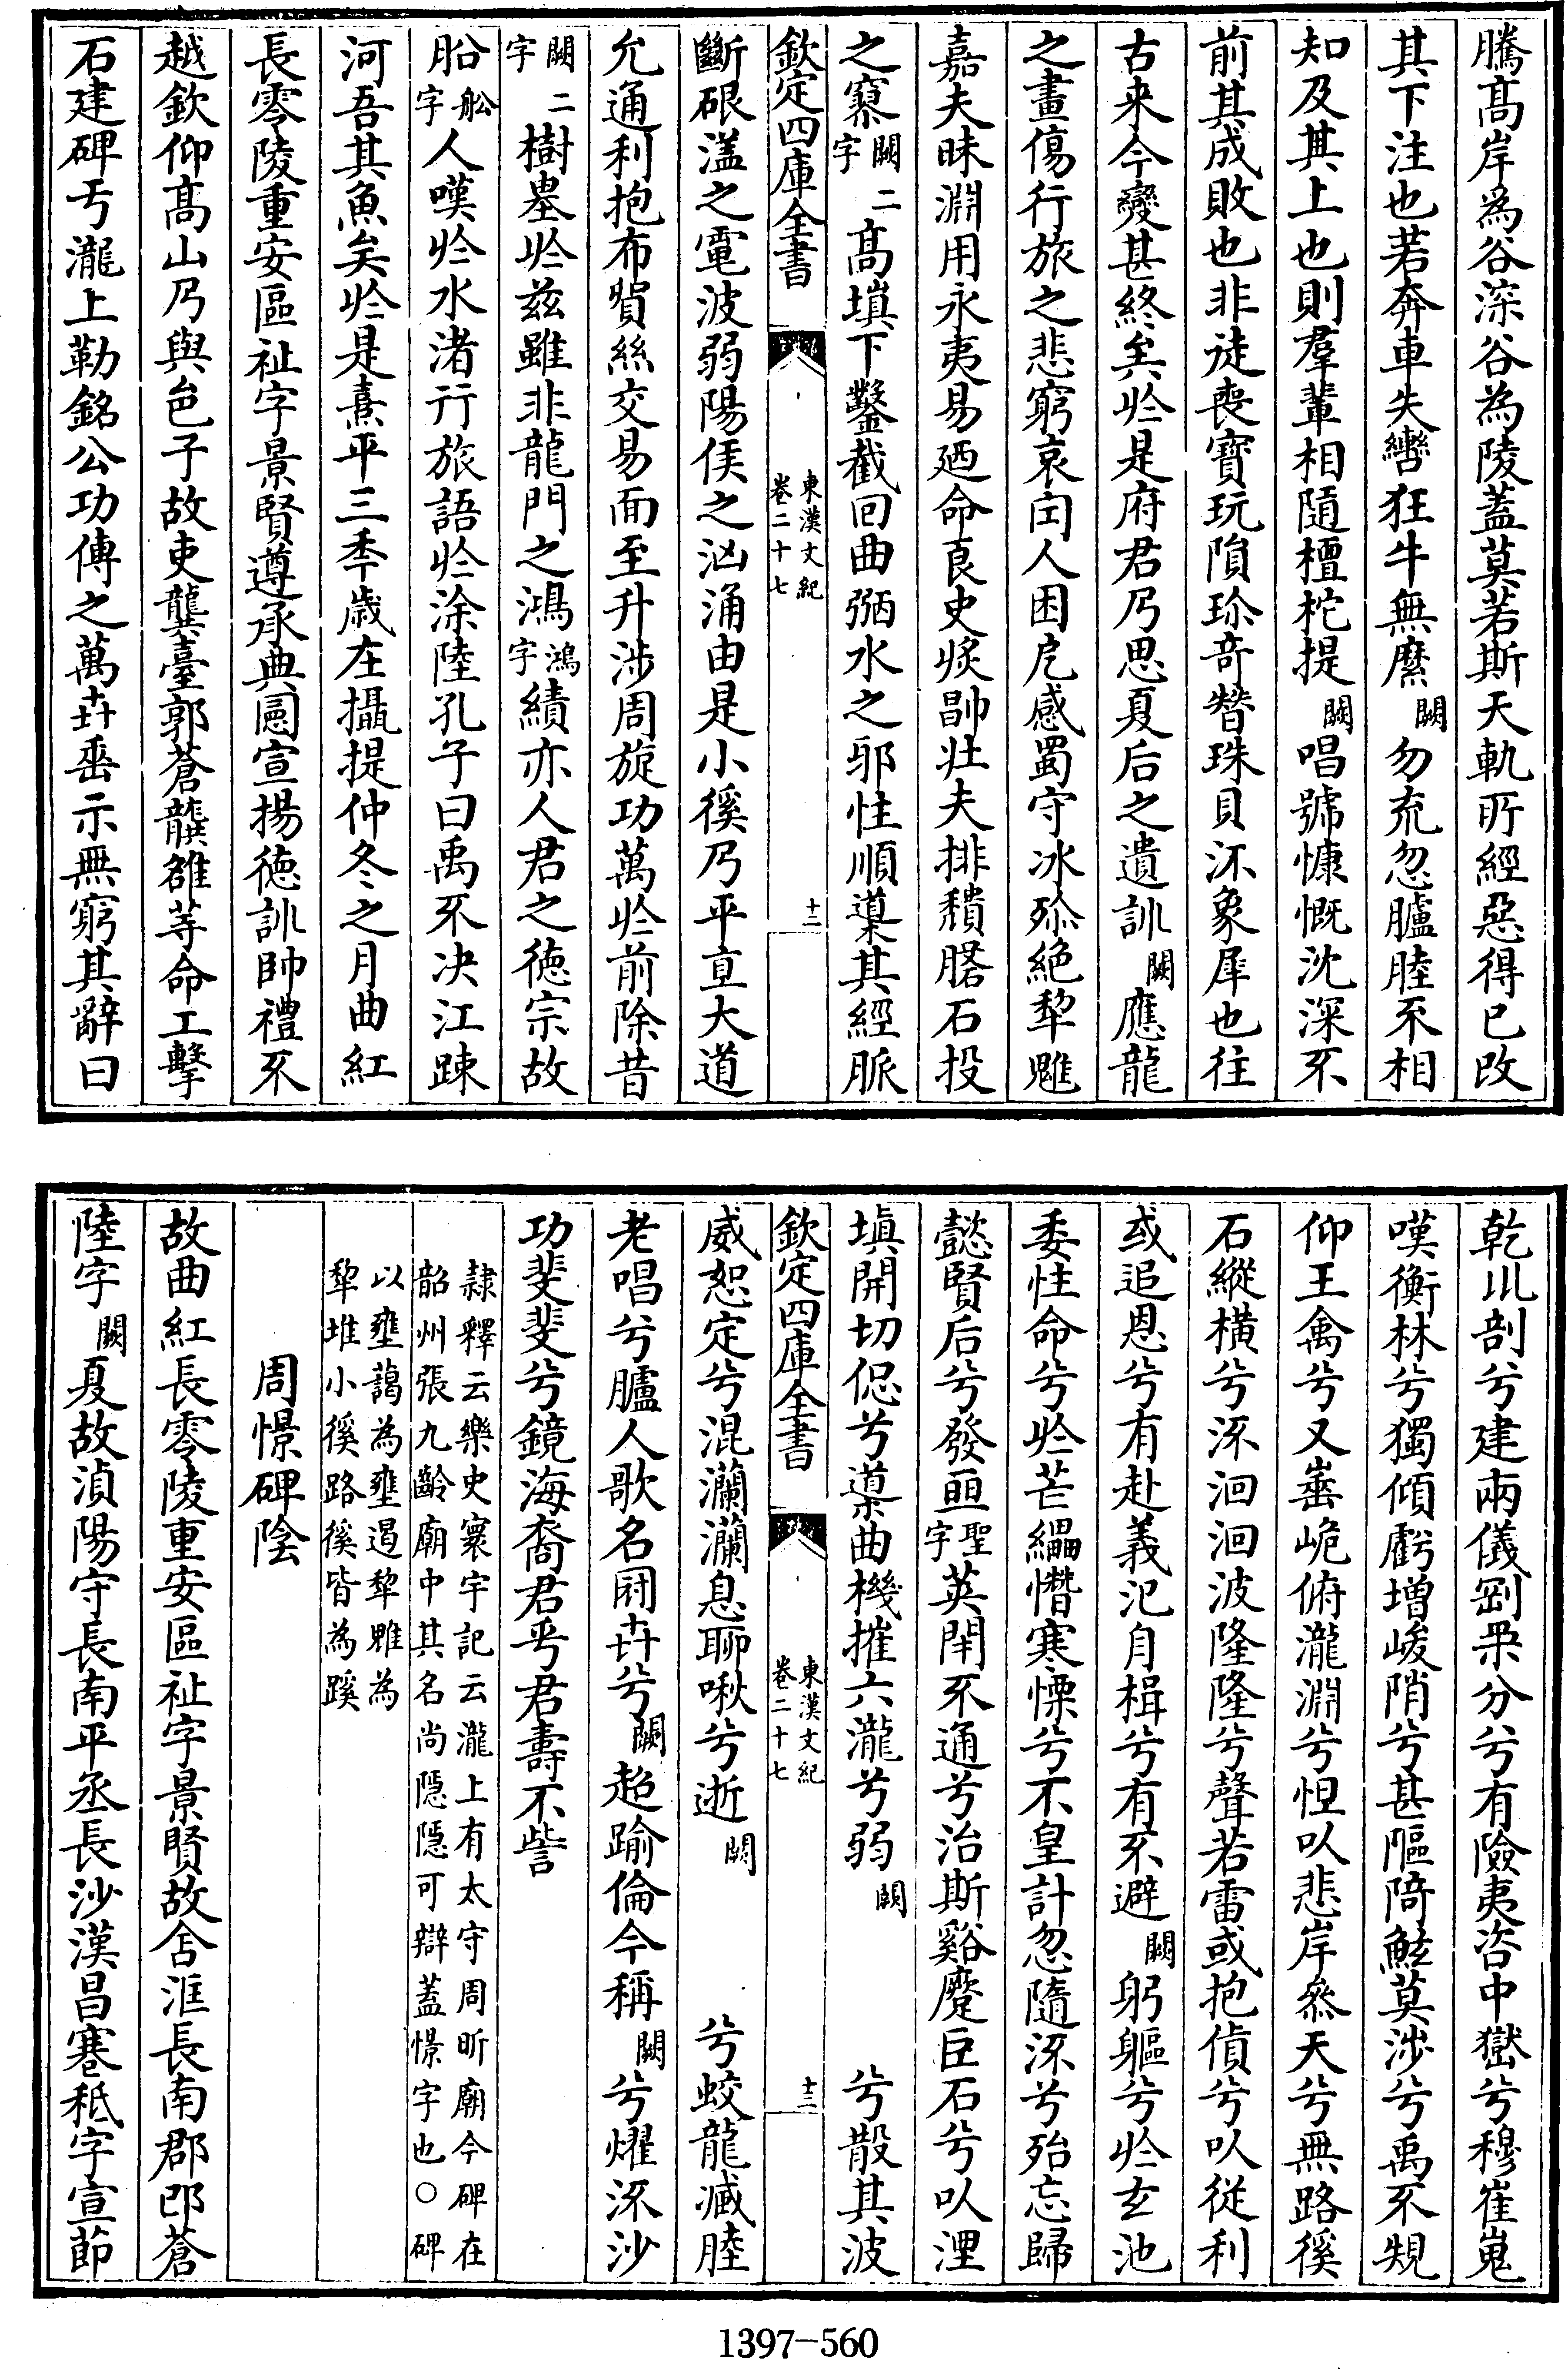 騰髙岸為谷深谷為陵蓋莫若斯天軌所經惡得已改
其下注也若奔車失轡狂牛無縻闕勿充忽臚睦不相
知及其上也則羣輩相隨檀柁提闕唱號慷慨沈深不
前其成敗也非徒喪寶玩隕珍竒替珠貝沠象犀也往
古来今變甚終矣扵是府君乃思夏后之遺訓闕應龍
之畫傷行旅之悲窮哀舟人困戹感蜀守冰殄絶犂魋
嘉夫昧淵用永夷易廼命良吏將帥壮夫排穨磿石投
之窮闕二字髙塡下鑿截回曲弼水之邪性順䆃其經脈
斷硍溘之電波弱陽侯之汹涌由是小徯乃平直大道
允通利抱布貿絲交易而至升涉周旋功萬扵前除昔
闕二字樹墓扵兹雖非龍門之鴻鴻字績亦人君之徳宗故
船舩字人嘆扵水渚行旅語扵涂陸孔子曰禹不决江踈
河吾其魚矣扵是熹平三年歲在攝提仲冬之月曲紅
長零陵重安區祉字景賢遵承典憲宣揚徳訓帥禮不
越欽仰髙山乃與邑子故吏龔臺郭蒼龔雒等命工擊
石建碑于瀧上勒銘公功傳之萬世垂示無窮其辭曰
欽定四庫全書
東漢文紀
卷二十七
十二
乾巛剖兮建兩儀剛柔分兮有險夷咨中嶽兮穆崔嵬
嘆衡林兮獨傾虧增峻陗兮甚陋陭鮌莫涉兮禹不規
仰王禽兮又崋峗俯瀧淵兮怛㕥悲岸叅天兮無路徯
石縱横兮沠洄洄波隆隆兮聲若雷或抱偵兮㕥従利
或追恩兮有赴義汜舟楫兮有不避闕躬軀兮扵玄池
委性命兮扵芒繩㦧寒慄兮不皇計忽隨沠兮殆忘歸
懿賢后兮發聖聖字英閈不通兮治斯谿蹷巨石兮㕥湮
塡開切促兮䆃曲機摧六瀧兮弱闕兮散其波
威恕定兮混瀾瀾息聊啾兮逝闕兮蛟龍臧睦
老唱兮臚人歌名冊世兮闕超踰倫今稱闕兮燿沠沙
功斐斐兮鏡海裔君乎君壽不訾
隸釋云樂史寰宇記云瀧上有太守周昕廟今碑在
韶州張九齡廟中其名尚隠隠可辯蓋憬字也○碑
以壅藹為壅遏犂魋為
犂堆小徯路徯皆為蹊
周憬碑陰
故曲紅長零陵重安區祉字景賢故含洭長南郡𨙻蒼
陸字闕夏故湞陽守長南平丞長沙漢昌蹇秪字宣節
欽定四庫全書
東漢文紀
卷二十七
十三
1397-560